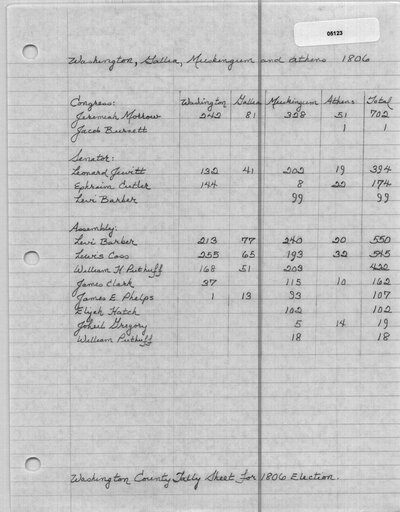 05123
Washington, Gallia, Muskingum and Athens 1806
Congress: Washington Gallia Muskingum Athens Total
Jeremiah Morrow 242 81 328 51 702
Jacob Burnett 1 1
Senator:
Leonard Jewitt 132 41 202 19 394
Ephraim Cutler 144 8 22 174
Levi Barber 99 99
Assembly:
Levi Barber 213 77 240 20 550
Lewis Cass 255 65 193 32 545
William H. Puthuff 168 51 203 432
James Clark 37 115 10 162
James E. Phelps 1 13 93 107
Elijah Hatch 102 102
Gregory 5 14 19
William Puthuff 18 18
Washington County Tally Sheet for 1806 Election.